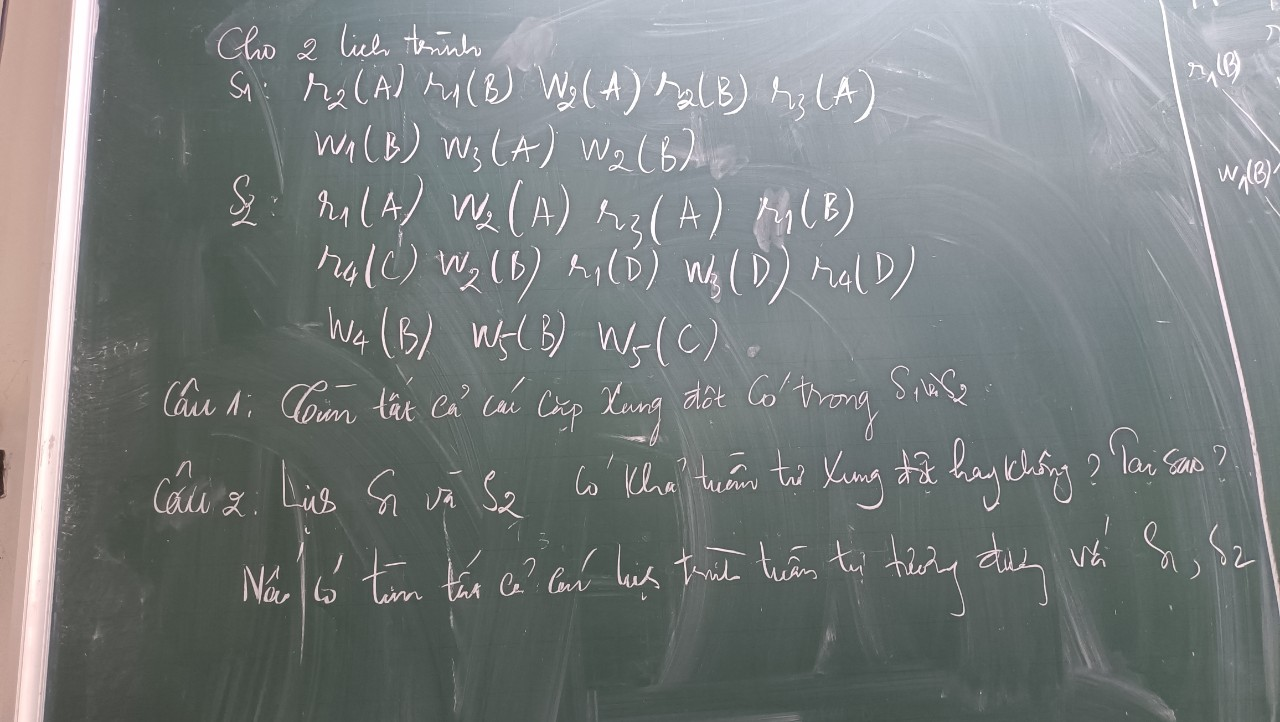 Cho 2 lịch trình
S1: r2(A) r1(B) W2(A) r2(B) r3(A)
W1(B) W3(A) W2(B)
S2: r1(A) W2(A) r3(A) r1(B)
r4(C) W2(B) r1(D) W3(D) r4(D)
W4(B) W5(B) W5(C)
Câu 1: Tìm tất cả các cặp xung đột có trong S1 và S2.
Câu 2: Lịch S1 và S2 có khả tuần tự xung đột hay không? Tại sao?
Nếu có tìm tất cả các lịch trình tuần tự tương đương với S1, S2
r1(B)
W1(B)